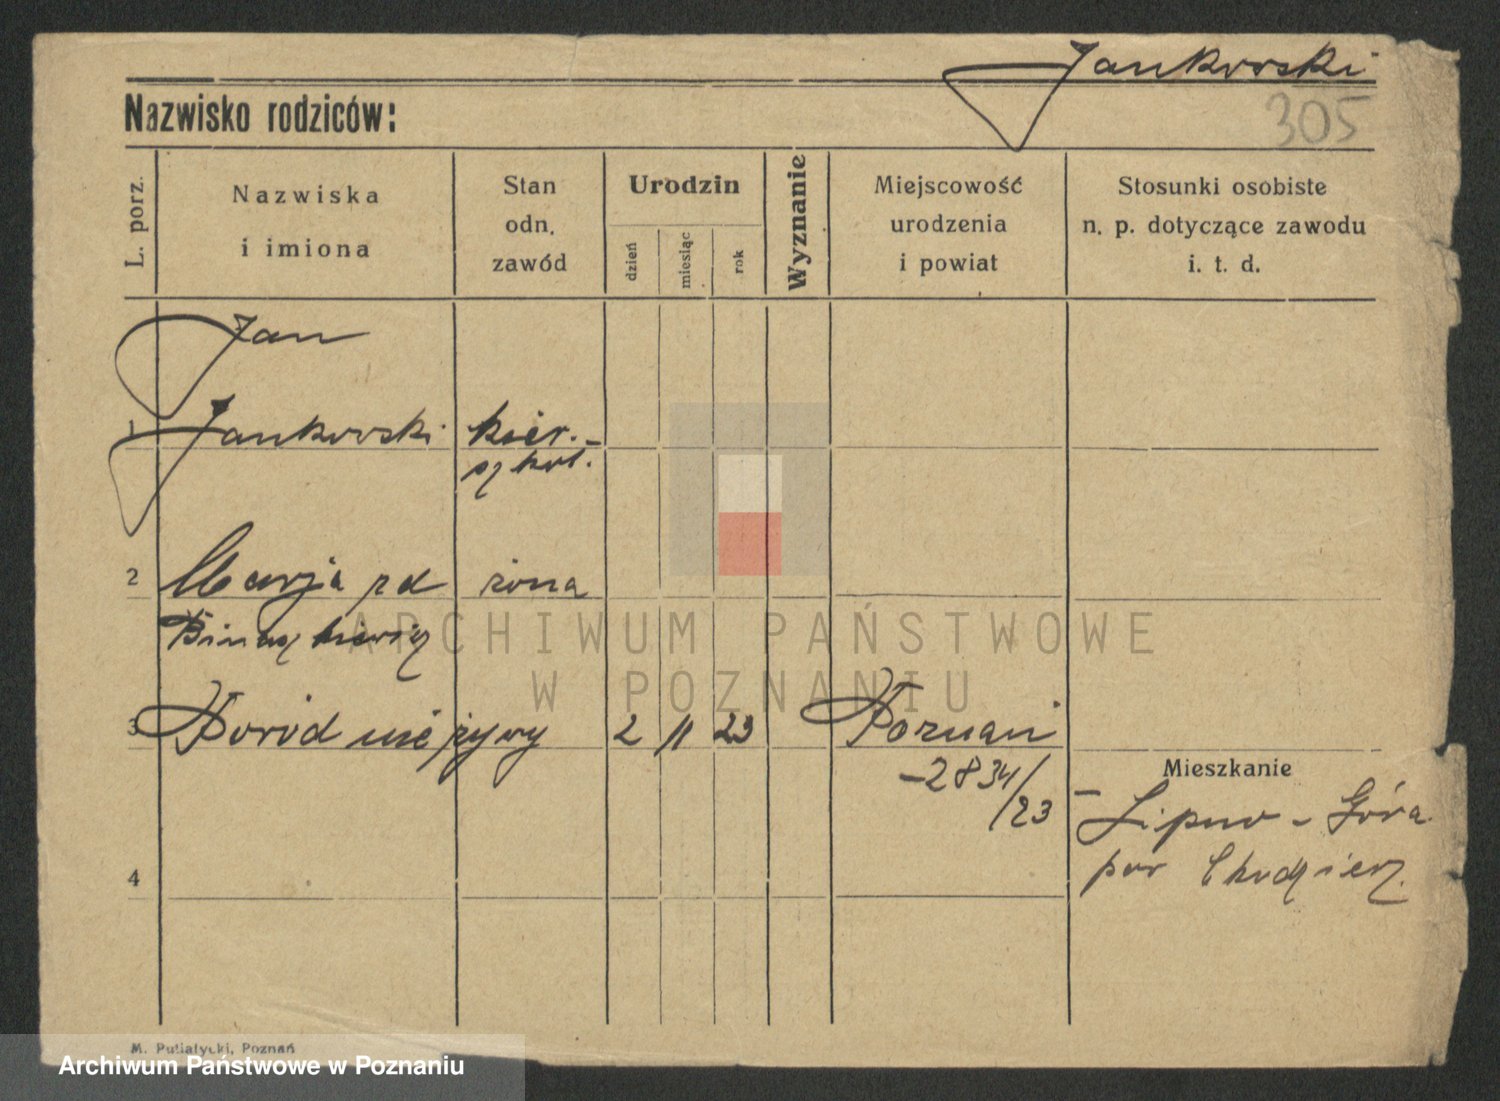 Jankowski
Nazwisko rodziców:
305
L. porz.
Nazwiska
i imiona
Stan
odn.
zawód
Urodzin
dzień
miesiąc
rok
Wyznanie
Miejscowość
urodzenia
i powiat
Stosunki osobiste
n. p. dotyczące zawodu
i. t. d.
Jan
1 Jankowski kier.-
szkol.
2 Marja zd żona
3 Poród nieżywy 2 11 23 Poznań
-2834/23
Mieszkanie
- Lipno - Góra
pow Chodzież.
4
ARCHIWUM PAŃSTWOWE
W POZNANIU
M. Putiatycki, Poznań
Archiwum Państwowe w Poznaniu